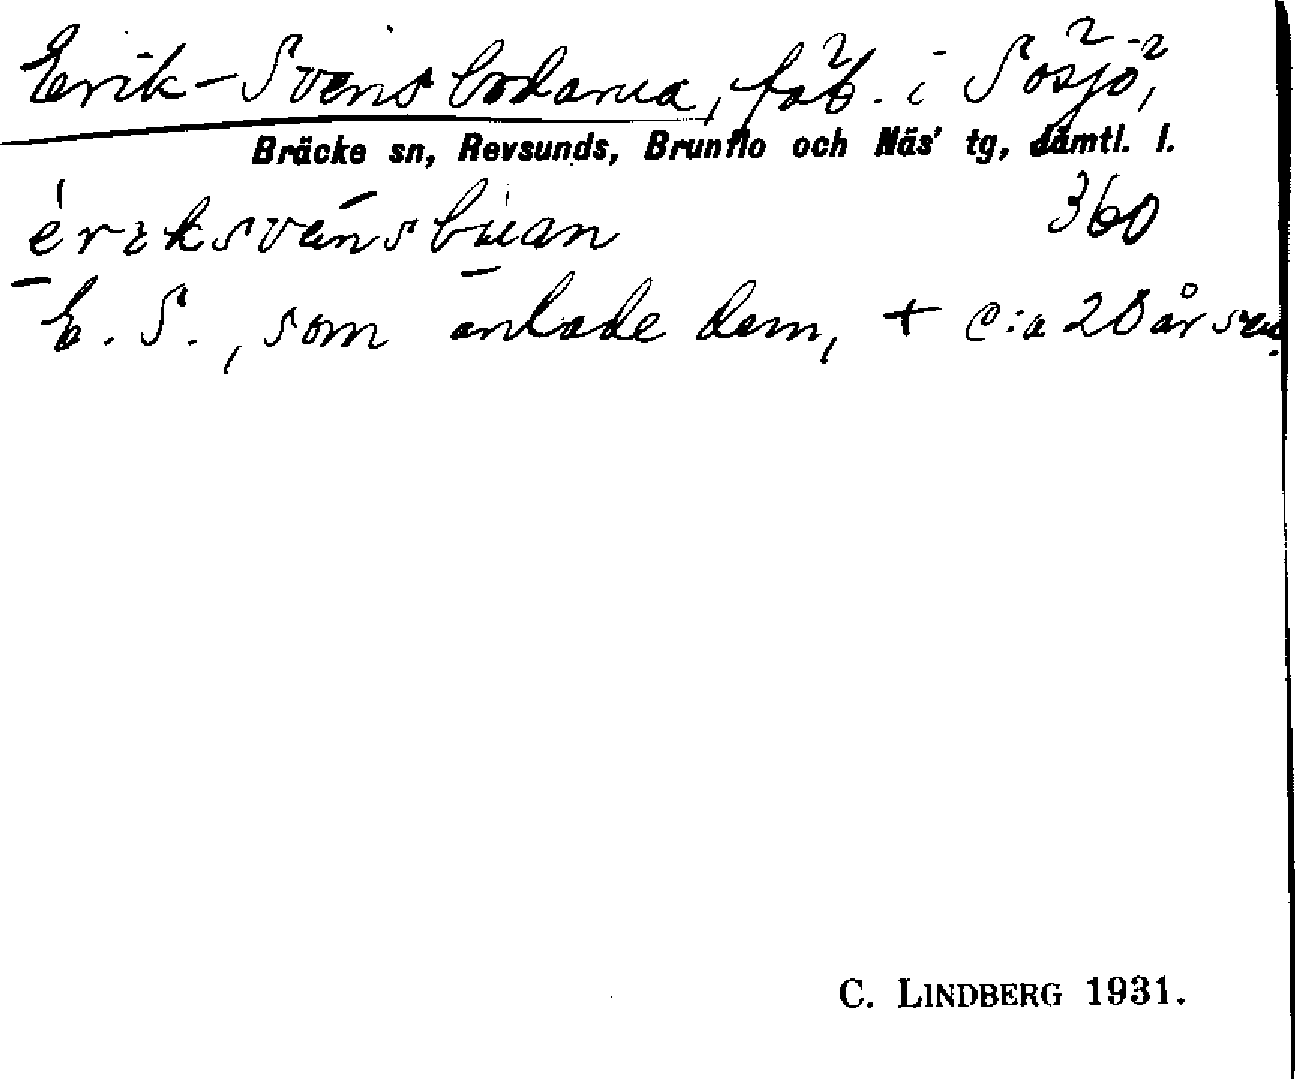 Erik-Svensbodarna, fäb. i Sösjö,
Bräcke sn, Revsunds, Brunflo och Näs' tg, Jämtl. l.
360
E. S., som anlade dem, + c:a 20 år sen.
C. LINDBERG 1931.